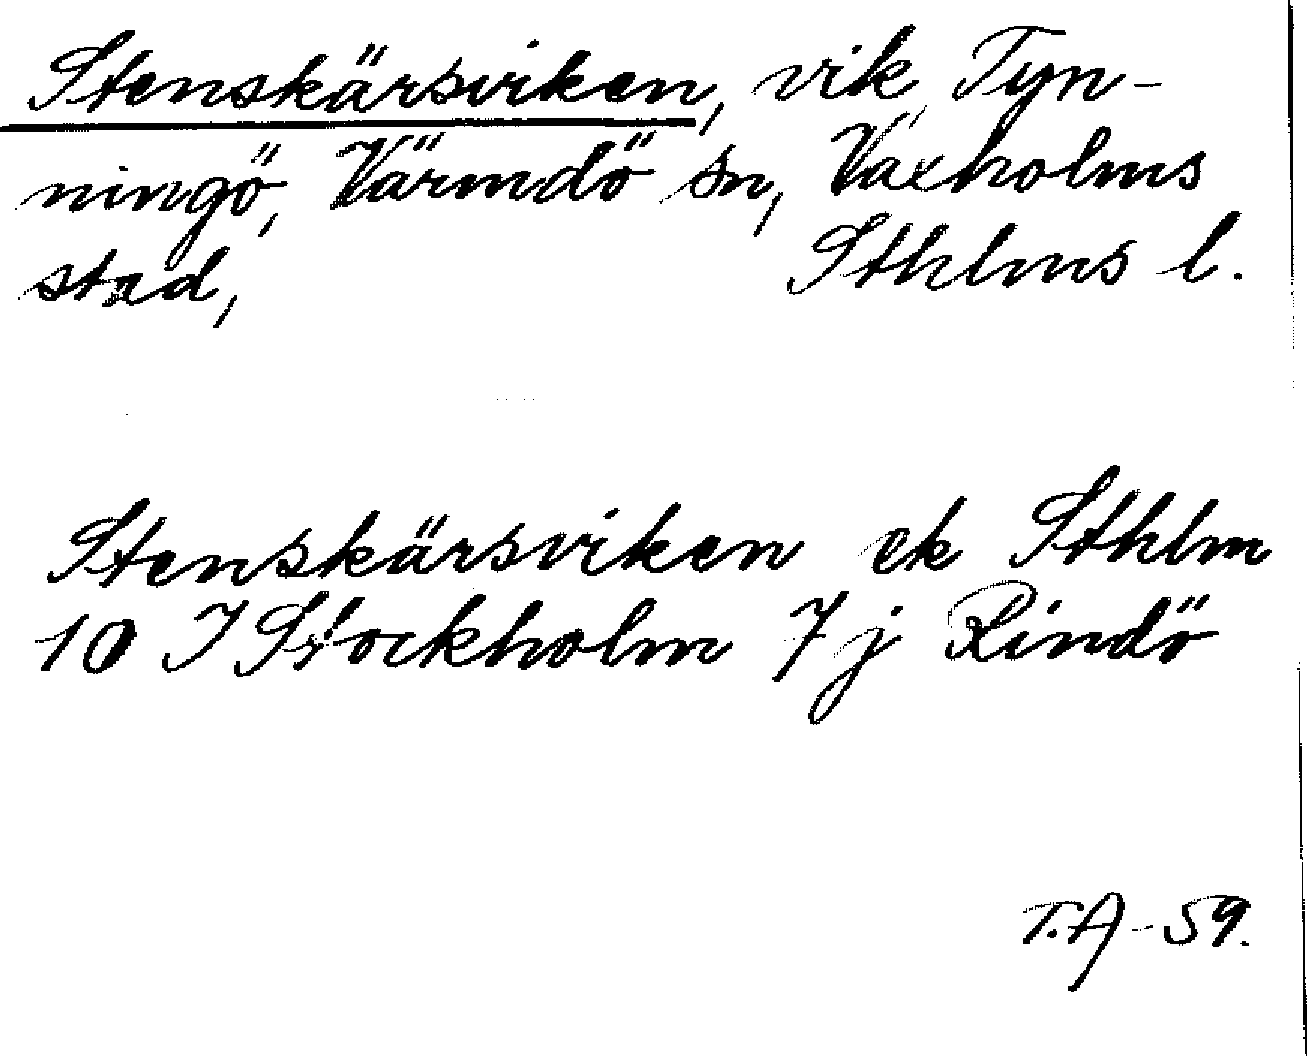 Stenskärsviken, vik, Tyn-
ningö, Värmdö sn, Vaxholms
stad, Sthlms l.
Stenskärsviken ek Sthlm
10 I Stockholm 7 j Rindö
T.A-59.